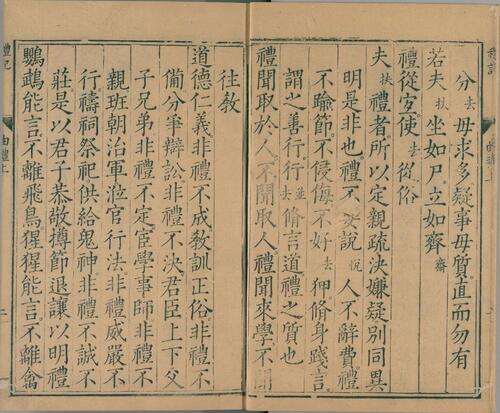 分去毋求多疑事毋質直而勿有
若夫扶坐如尸立如齊齋
禮從宜使去從俗
夫扶禮者所以定親疏決嫌疑別同異
明是非也禮不妄說悦人不辭費禮
不踰節不侵侮不好去狎脩身踐言
謂之善行行並去脩言道禮之質也
禮聞取於人不聞取人禮聞來學不聞
往敎
道德仁義非禮不成敎訓正俗非禮不
備分爭辯訟非禮不決君臣上下父
子兄弟非禮不定宦學事師非禮不
親班朝治軍涖官行法非禮威嚴不
行禱祠祭祀供給鬼神非禮不誠不
莊是以君子恭敬撙節退讓以明禮
鸚鵡能言不離飛鳥猩猩能言不離禽
禮記
曲禮上
二